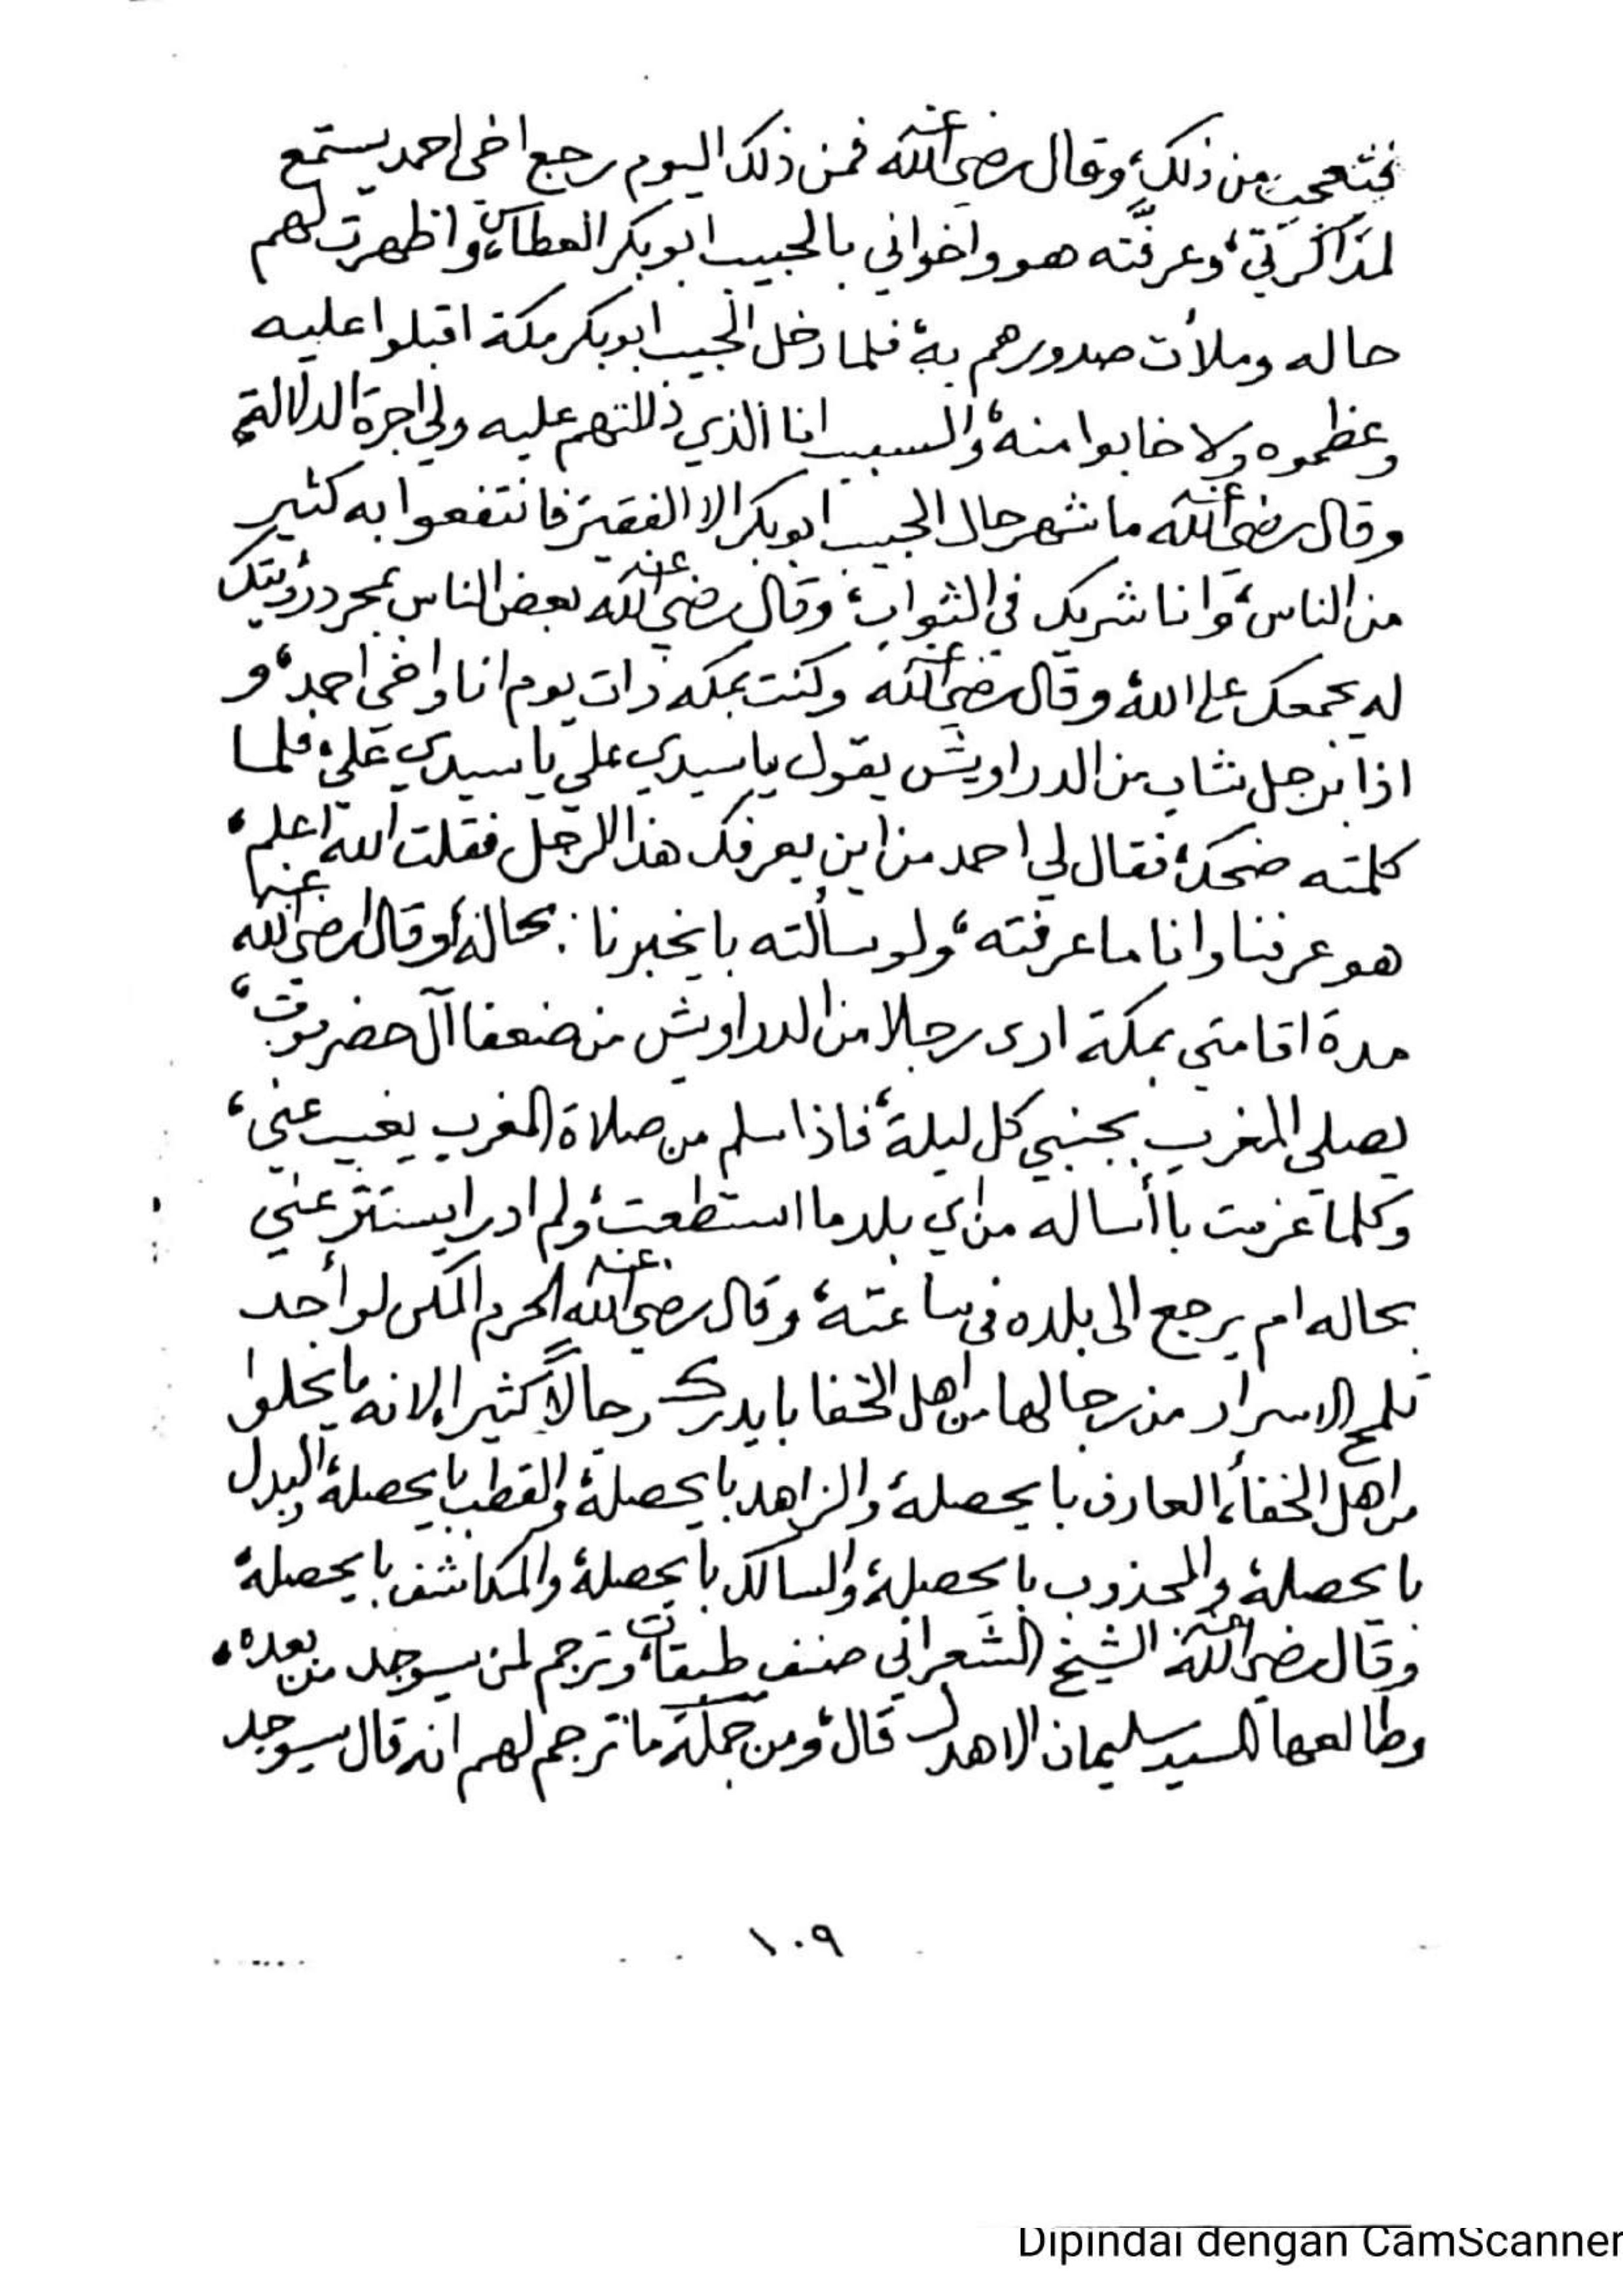 فتعجب من ذلك، وقال رضي الله عنه فمن ذلك اليوم رجع اخي احمد يستمع
لمذاكرتي، وعرفته هو واخواني بالحبيب ابوبكر العطاس، واظهرت لهم
حاله وملأت صدورهم به، فلما دخل الحبيب ابوبكر مكة اقبلوا عليه
وعظموه ولا خابوا منه، والسبب انا الذي دللتهم عليه ولي اجرة الدلالة،
وقال رضي الله عنه ما شهر حال الحبيب ابوبكر الا الفقير فانتفعوا به كثير
من الناس، وانا شريك في الثواب، وقال رضي الله عنه بعض الناس بمجرد رؤيتك
له يجمعك على الله، وقال رضي الله عنه وكنت بمكه ذات يوم انا واخي احمد، و
اذا برجل شاب من الدراويش يقول يا سيدي علي يا سيدي علي، فلما
كلمته ضحك، فقال لي احمد من اين يعرفك هذا الرجل فقلت الله اعلم،
هو عرفنا وانا ما عرفته، ولو سألته با يخبرنا: بحاله، وقال رضي الله عنه
مدة اقامتي بمكة ارى رجلا من الدراويش من ضعفا آل حضرموت،
يصلي المغرب بجنبي كل ليلة، فاذا سلم من صلاة المغرب يغيب عني،
وكلما عزمت با أساله من اي بلد ما استطعت، ولم ادر ايستتر عني
بحاله ام يرجع الى بلده في ساعته، وقال رضي الله عنه الحرم المكي لو أحد
تلمح الاسرار من رجالها من اهل الخفا با يدرك رجالاً كثيرا، لانه ما يخلوا
من اهل الخفاء، العارف با يحصله، والزاهد با يحصله، والقطب با يحصله، والبدل
با يحصله، والمجذوب با يحصله، والسالك با يحصله، والمكاشف با يحصله،
وقال رضي الله عنه الشيخ الشعراني صنف طبقات، وترجم لمن سيوجد من بعده،
وطالعها السيد سليمان الاهدل قال، ومن جملة ما ترجم لهم انه قال سيوجد
١٠٩
Dipindai dengan CamScanner